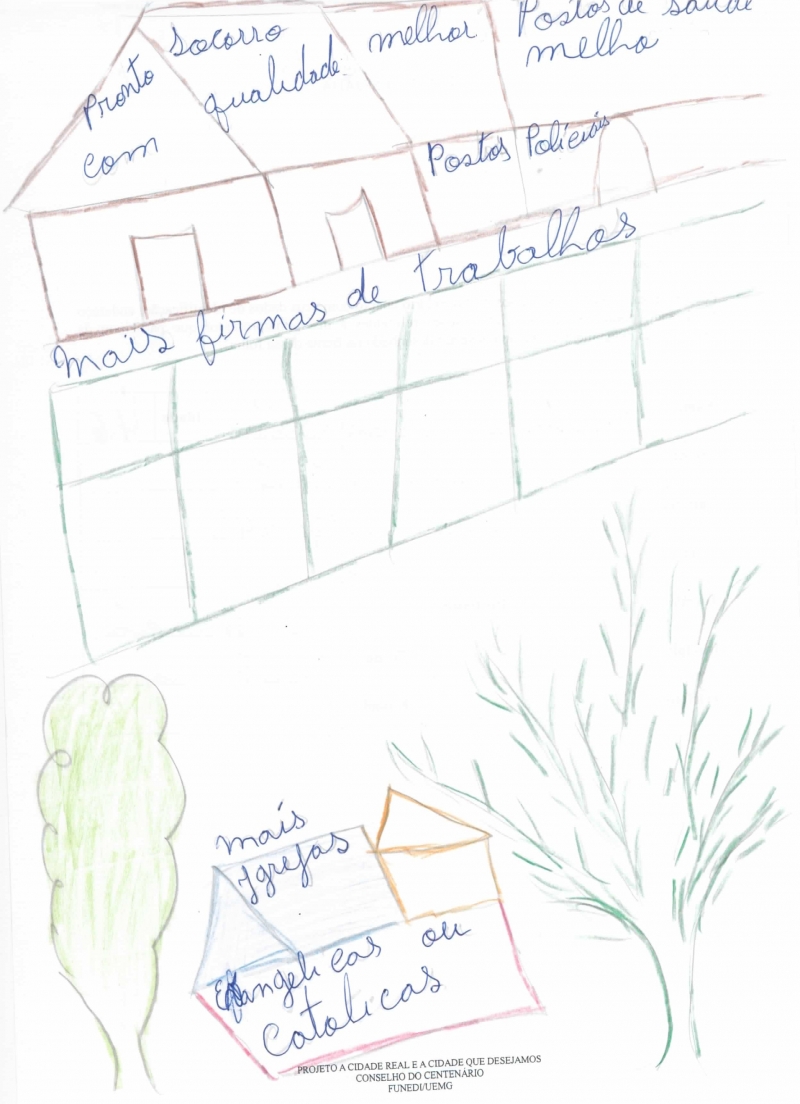 Pronto Socorro melhor
com qualidade
Postos de saúde
melho
Postos Policiais
mais firmas de trabalhos
mais
Igrejas
Evangelicas ou
Catolicas
PROJETO A CIDADE REAL E A CIDADE QUE DESEJAMOS
CONSELHO DO CENTENÁRIO
FUNEDI/UEMG